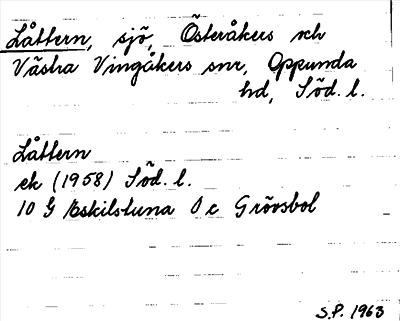 Låttern, sjö, Österåkers och
Västra Vingåkers snr, Oppunda
hd, Söd. l.
Låttern
ek (1958) Söd. l.
10 G Eskilstuna 0 c Grövsbol
S.P. 1963